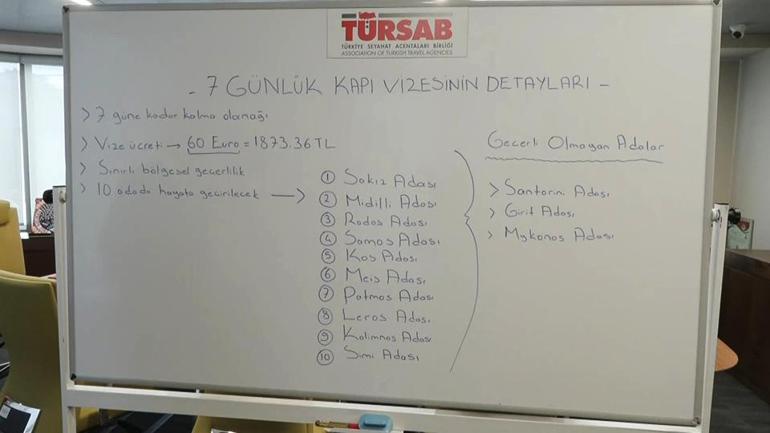 TÜRSAB
TÜRKİYE SEYAHAT ACENTALARI BİRLİĞİ
ASSOCIATION OF TURKISH TRAVEL AGENCIES
- 7 GÜNLÜK KAPI VİZESİNİN DETAYLARI -
> 7 güne kadar kalma olanağı
> Vize ücreti → 60 Euro = 1873.36 TL
> Sınırlı bölgesel geçerlilik
> 10 adada hayata geçirilecek →
① Sakız Adası
② Midilli Adası
③ Rodos Adası
④ Samos Adası
⑤ Kos Adası
⑥ Meis Adası
⑦ Patmos Adası
⑧ Leros Adası
⑨ Kalimnos Adası
⑩ Simi Adası
Geçerli Olmayan Adalar
> Santorini Adası
> Girit Adası
> Mykonos Adası